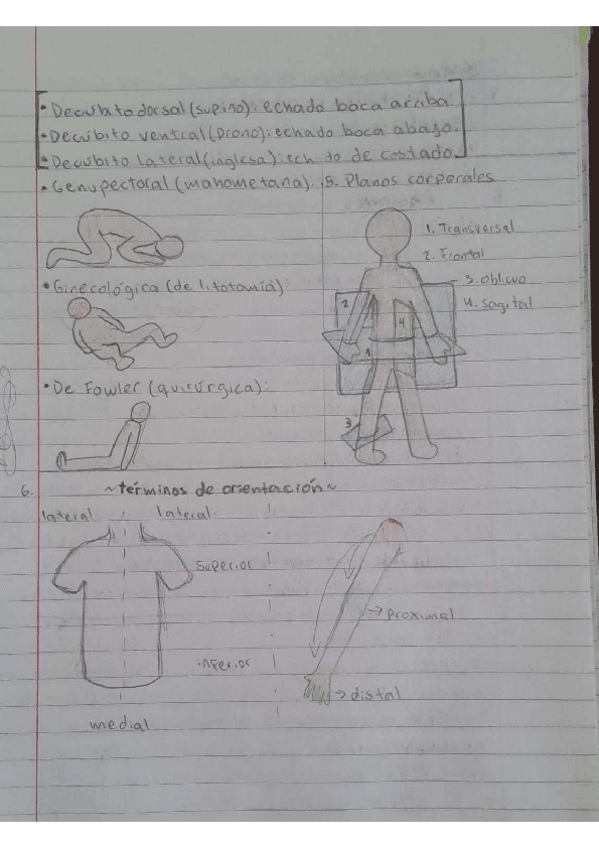 • Decúbito dorsal (supino): echado boca arriba
• Decúbito ventral (prono): echado boca abajo.
• Decúbito lateral (inglesa): echado de costado.
• Genupectoral (mahometana):
5. Planos corporales
1. Transversal
2. Frontal
3. oblicuo
4. sagital
2
4
1
3
• Ginecológica (de litotomía):
• De Fowler (quirúrgica):
6. ~términos de orientación~
lateral lateral
superior
proximal
inferior
distal
medial